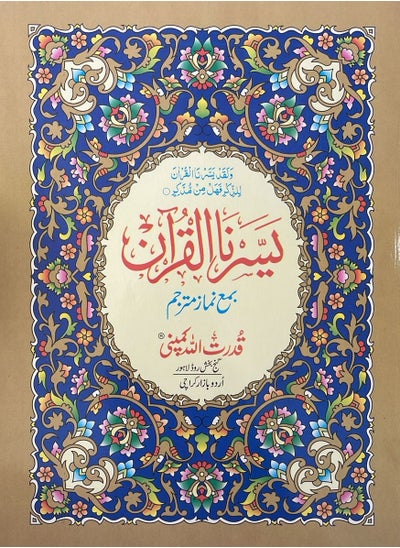 وَلَقَدْ يَسَّرْنَا الْقُرْاٰنَ
لِلذِّكْرِ فَهَلْ مِنْ مُّدَّكِرٍ ○
يسّرنا القرآن
بمع نماز مترجم
قدرت اللہ کمپنی ®
گنج بخش روڈ لاہور
اُردو بازار کراچی